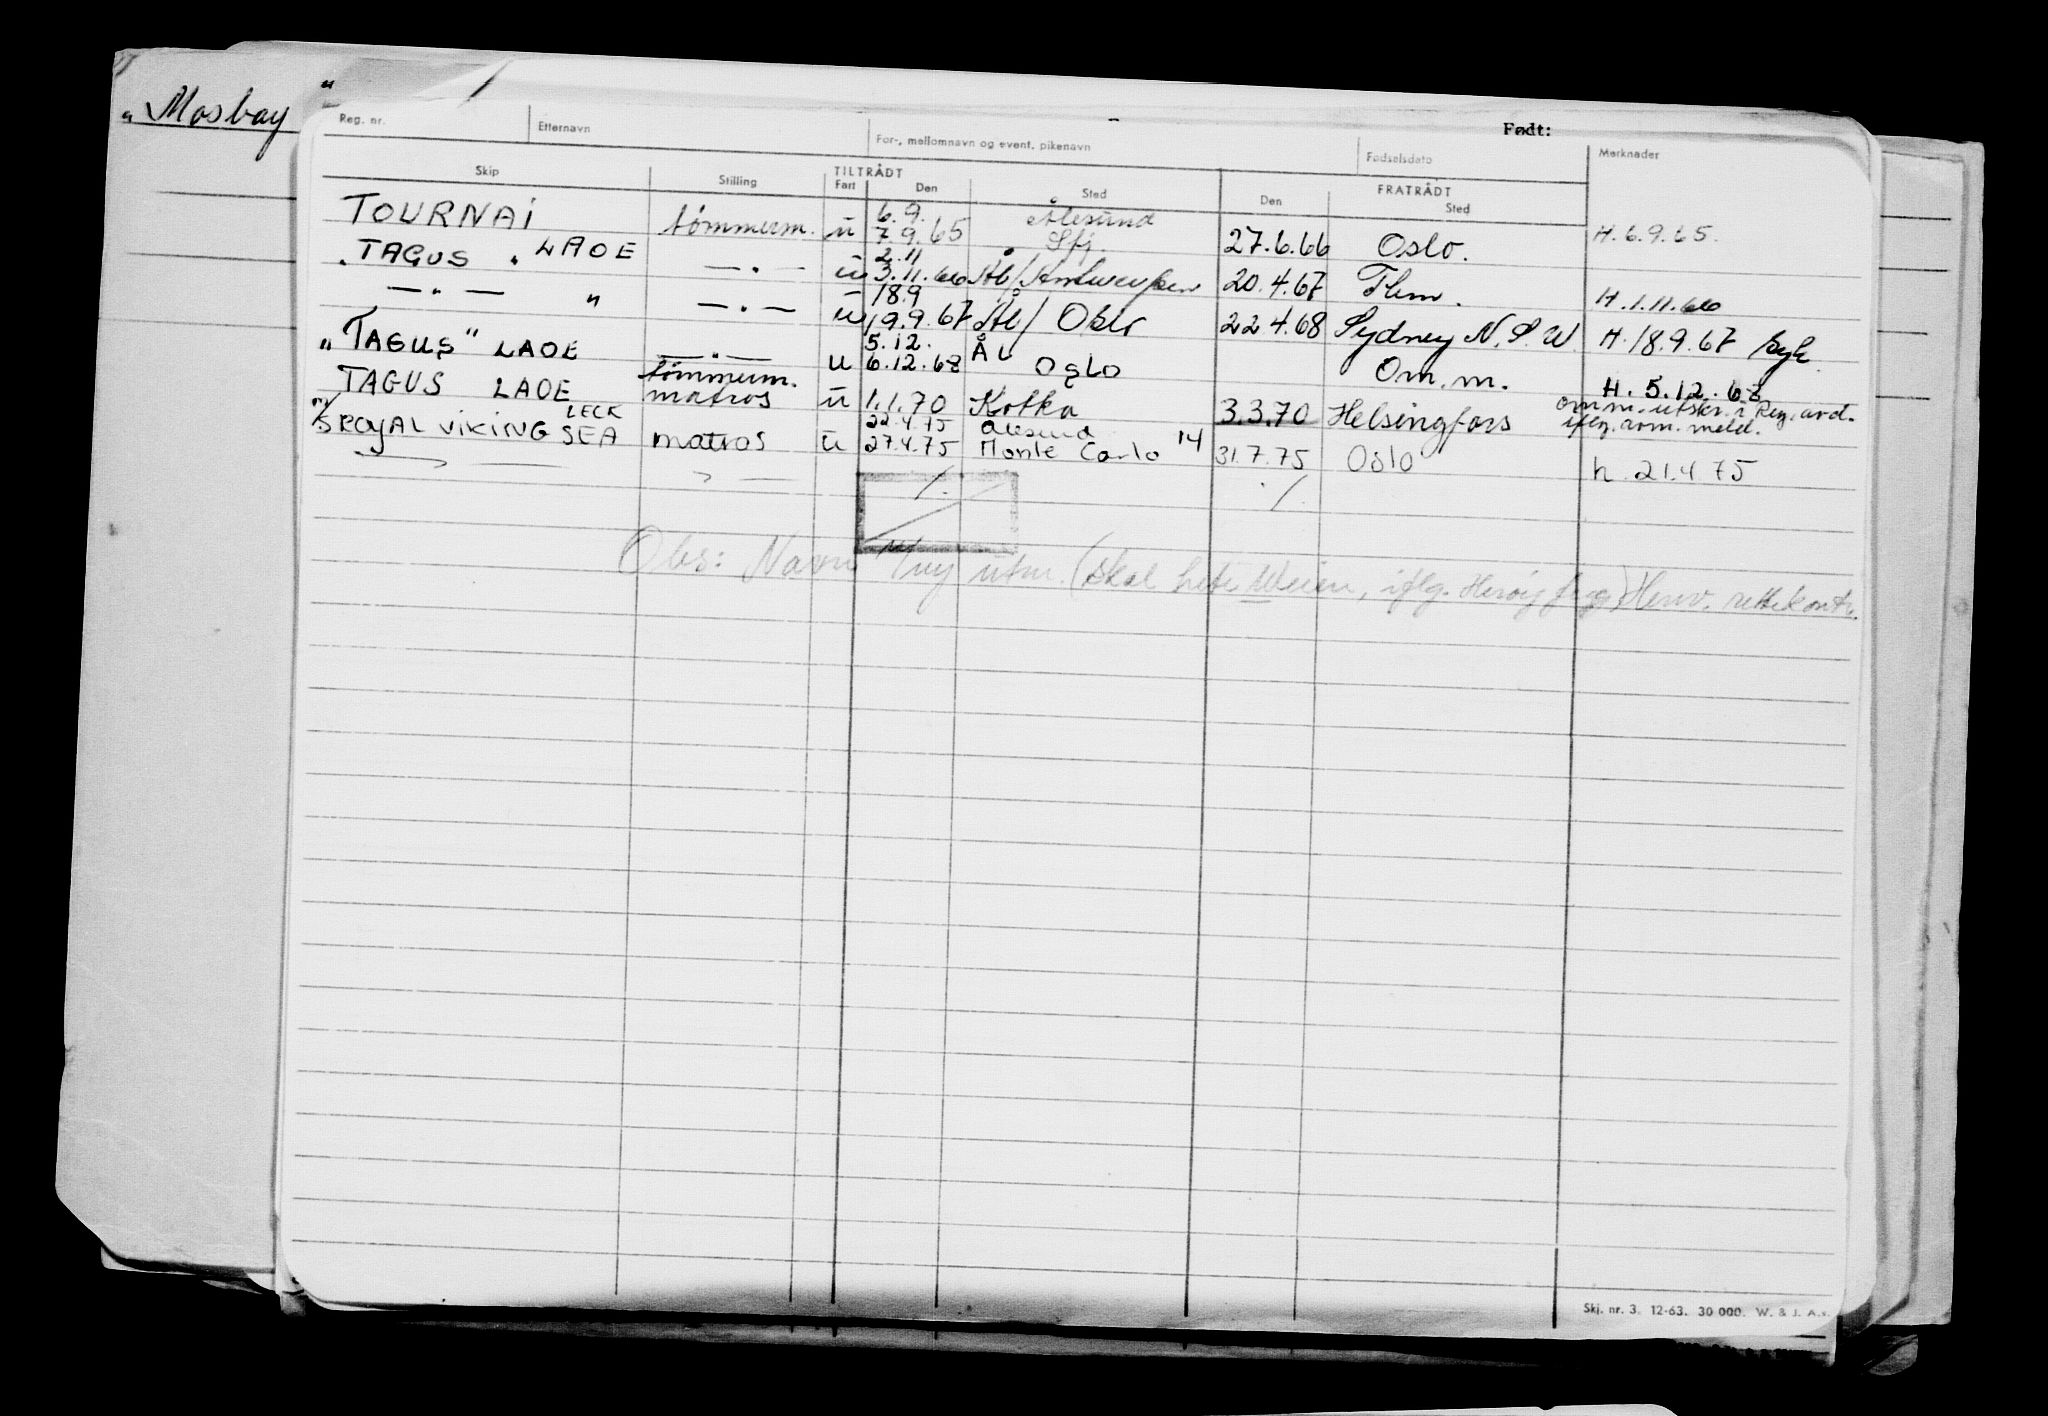 "Mosbay"
Reg. nr. Etternavn For-, mellomnavn og event. pikenavn Født: Fødselsdato Merknader
TILTRÅDT FRATRÅDT
Skip Stilling Fart Den Sted Den Sted
TOURNAI tømmerm. u 6.9. 7.9.65 Ålesund Sfj. 27.6.66 Oslo. H. 6.9.65.
"TAGUS" LAOE —"— u 2.11 3.11.66 Ål/Antwerpen 20.4.67 Thm. H. 1.11.66
—"— " —"— u 18.9 19.9.67 Ål/ Oslo 22.4.68 Sydney N.S.W. H. 18.9.67 syk
"TAGUS" LAOE —"— tømmerm. u 5.12. 6.12.68 ÅL Oslo Om.m. H. 5.12.68
TAGUS LAOE matros u 1.1.70 Kotka 3.3.70 Helsingfors omm. utskr. i Reg. avd. iflg. rom. meld.
ROYAL VIKING SEA LECK matros u 22.4.75 27.4.75 Ålesund Monte Carlo 14 31.7.75 Oslo h. 21.4.75
Obs: Navn utm. (skal hete Weien, iflg. Herøy ) Henv. rettekont.
Skj. nr. 3. 12-63. 30 000. W. & J. A.s.